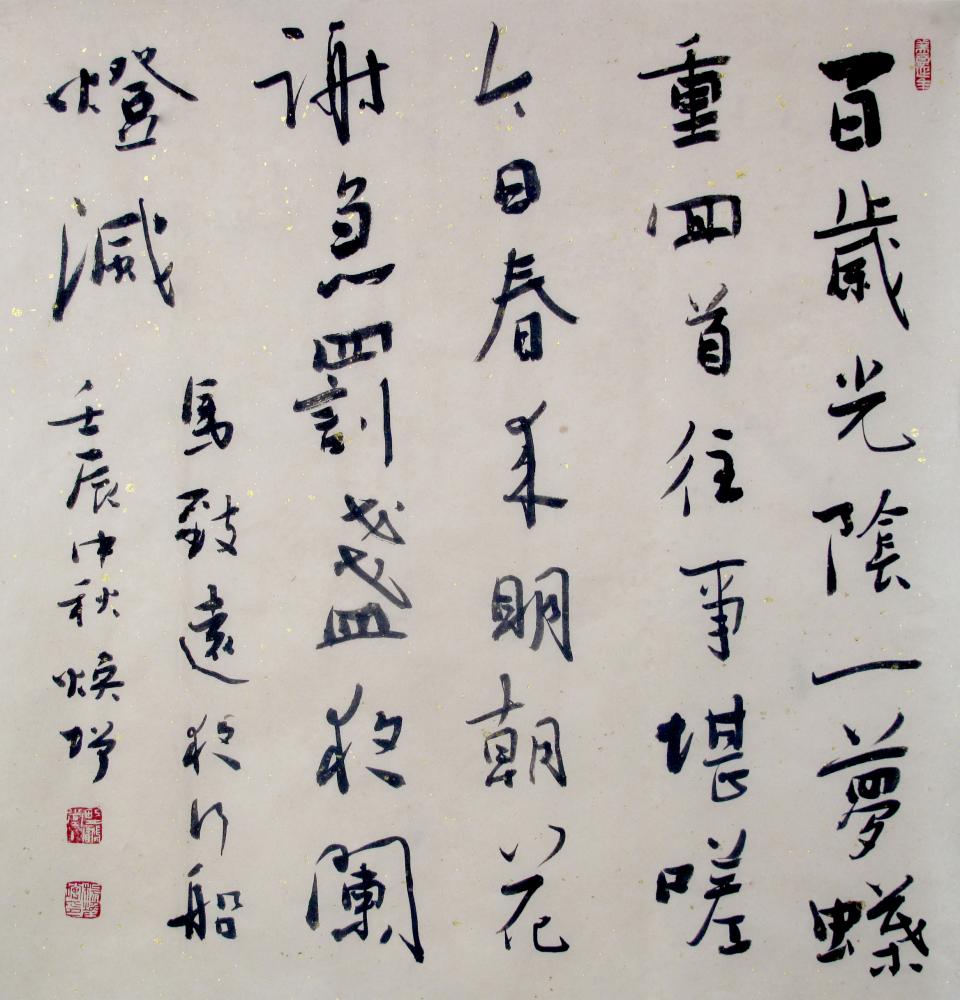 百歲光陰一夢蝶
重回首往事堪嗟
今日春来明朝花
謝急罰盞夜闌
燈滅
馬致遠夜行船
壬辰中秋煥